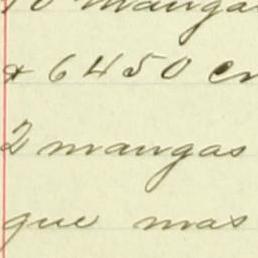 10 mangas
& 6450 en
2 mangas
que mas